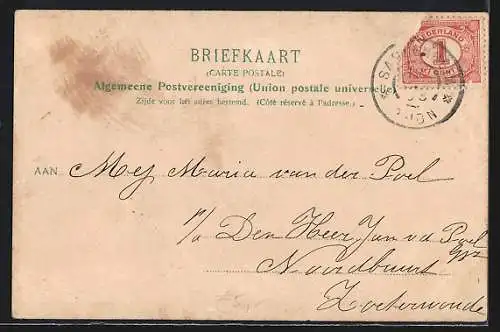 BRIEFKAART
(CARTE POSTALE)
Algemeene Postvereeniging (Union postale universelle)
Zijde voor het adres bestemd. (Côté réservé à l'adresse.)
NEDERLAND
1
CENT
AAN Mej Maria van der Poel
p/a Den Heer Jan v d Poel
Noordbuurt
Zoeterwoude